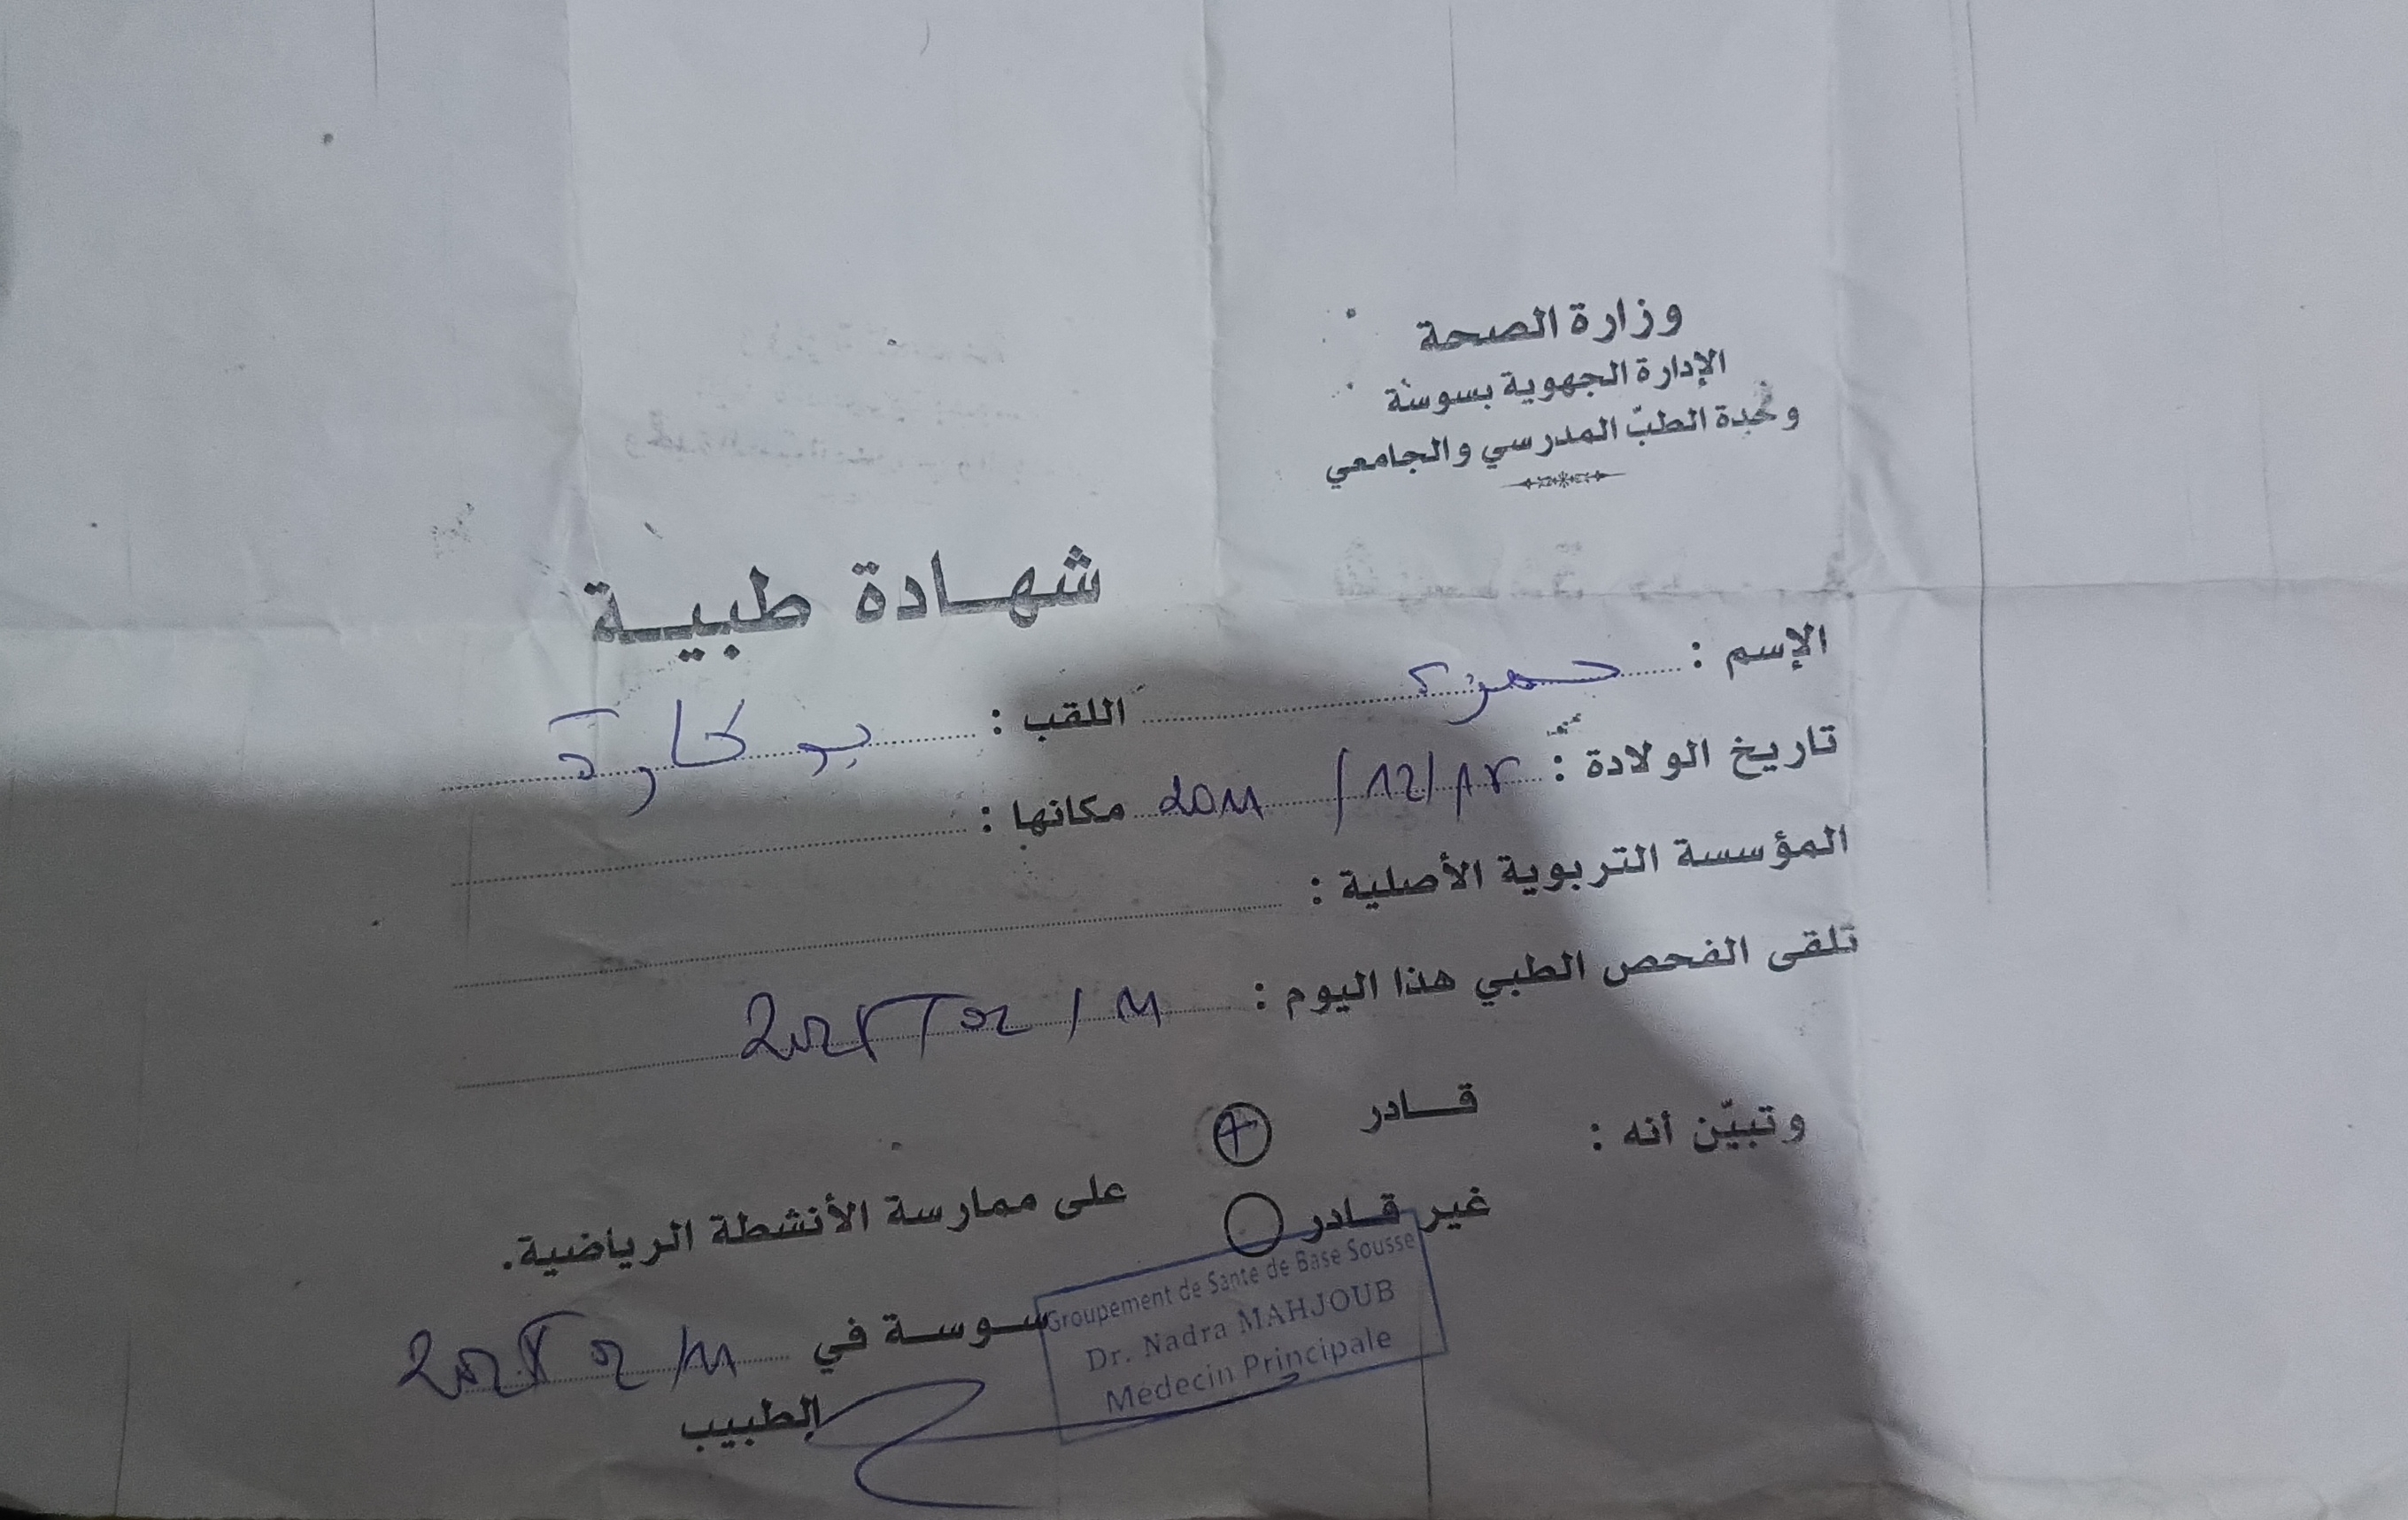 وزارة الصحة
الإدارة الجهوية بسوسة
وحدة الطبّ المدرسي والجامعي
شهادة طبية
الإسم : حمزة اللقب : بوكارة
تاريخ الولادة : 12/ 2011 مكانها :
المؤسسة التربوية الأصلية :
تلقى الفحص الطبي هذا اليوم : 11 / 02
وتبيّن أنه : قادر
غير قادر
على ممارسة الأنشطة الرياضية.
Groupement de Sante de Base Sousse
Dr. Nadra MAHJOUB
Medecin Principale
سوسة في 11/ 02
الطبيب